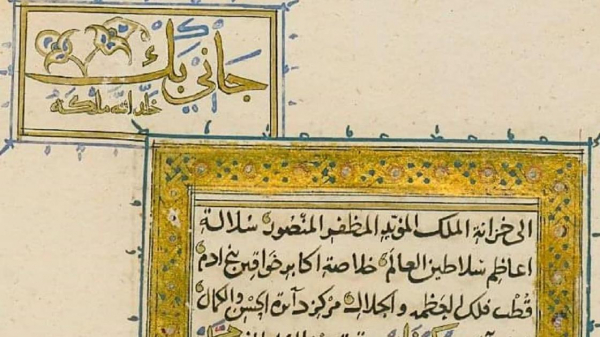 جاني بك
خلد الله ملكه
الى خزانة الملك المؤيد المظفر المنصور سلالة
اعاظم سلاطين العالم خلاصة اكابر خواقين بني ادم
قطب فلك العظمة والجلال مركز دآئرة الحسن والكمال